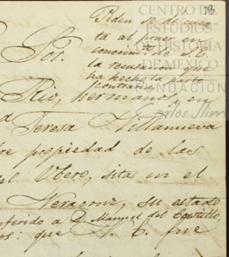 CENTRO DE
ESTUDIOS
DE HISTORIA
DE MEXICO
FUNDACIÓN
Carlos Slim
18
Piden se dé cuen
ta al poner en
conocimto. de
la recusacion que
ha hecho la parte
contraria
Sor.
Rio, hermano, en
Teresa Villanueva
propiedad de las
el Obero, sita en el
Veracruz, su estado
referido a D. Manuel del Castillo,
os: que V. E. fue